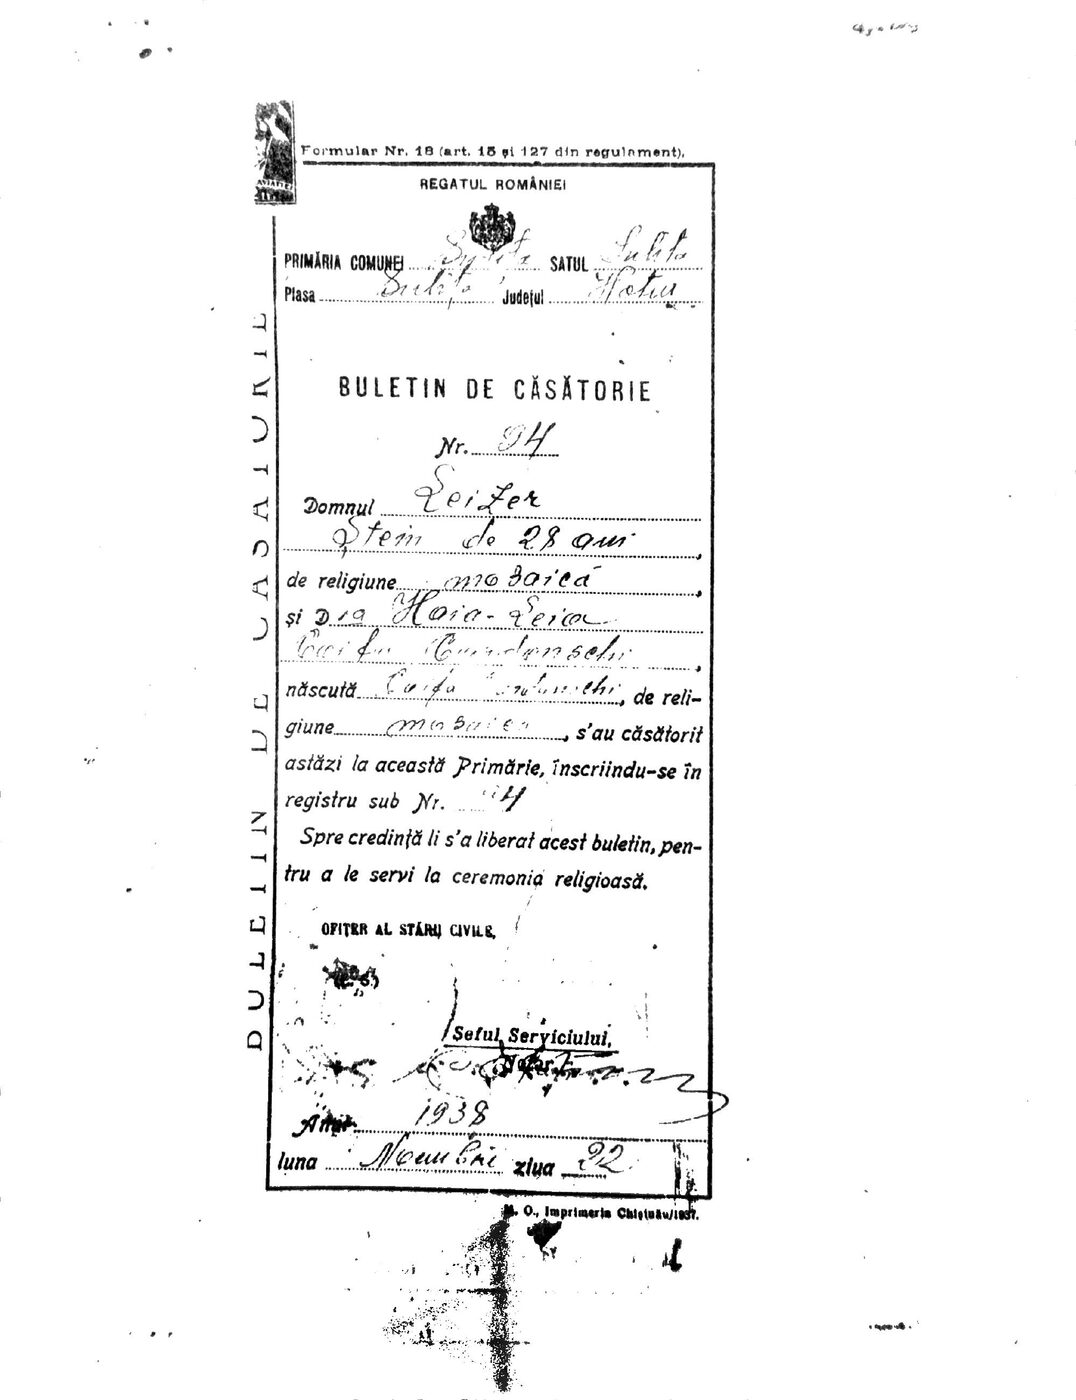 Formular Nr. 18 (art. 15 și 127 din regulament).
REGATUL ROMÂNIEI
PRIMĂRIA COMUNEI SATUL Sulița
Plasa Sulița Județul Hotin
BULETIN DE CĂSĂTORIE
BULETIN DE CĂSĂTORIE
Nr. 94
Domnul Leizer
Ștein de 28 ani,
de religiune mozaică,
și D ra Haia-Leia
născută, de reli-
giune mozaică, s'au căsătorit
astăzi la această Primărie, înscriindu-se în
registru sub Nr. 94
Spre credință li s'a liberat acest buletin, pen-
tru a le servi la ceremonia religioasă.
OFIȚER AL STĂRII CIVILE,
(L. S.)
Șeful Serviciului,
Notar
Anul 1938
luna Noembrie ziua 22
M. O., Imprimeria Chișinău/1937.